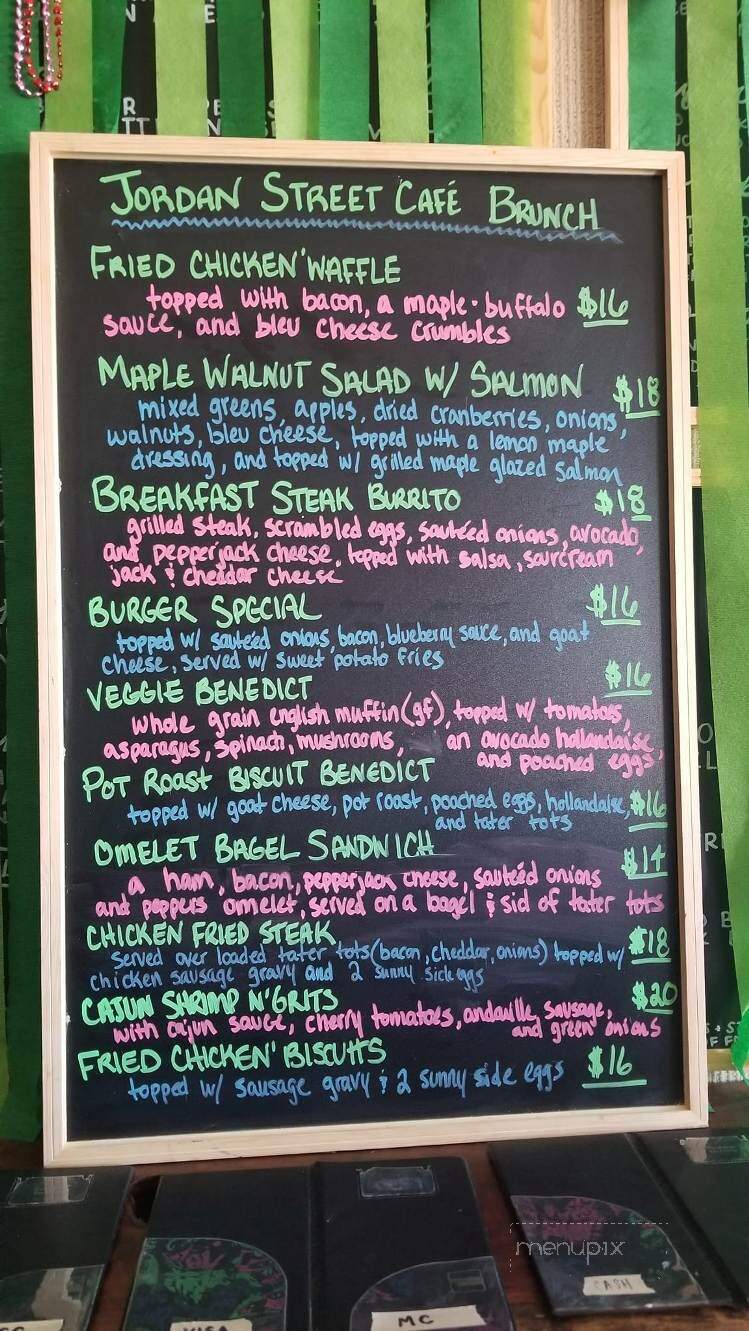 JORDAN STREET CAFÉ BRUNCH
FRIED CHICKEN' WAFFLE
topped with bacon, a maple-buffalo $16
sauce, and bleu cheese crumbles
MAPLE WALNUT SALAD W/ SALMON $18
mixed greens, apples, dried cranberries, onions,
walnuts, bleu cheese, topped with a lemon maple
dressing, and topped w/ grilled maple glazed salmon
BREAKFAST STEAK BURRITO $18
grilled steak, scrambled eggs, sautéed onions, avocado,
and pepperjack cheese, topped with salsa, sourcream
jack & cheddar cheese
BURGER SPECIAL $16
topped w/ sautéed onions, bacon, blueberry sauce, and goat
cheese, served w/ sweet potato fries
VEGGIE BENEDICT $16
whole grain english muffin (gf), topped w/ tomatoes,
asparagus, spinach, mushrooms, an avocado hollandaise,
and poached eggs,
POT ROAST BISCUIT BENEDICT
topped w/ goat cheese, pot roast, poached eggs, hollandaise, $16
and tater tots
OMELET BAGEL SANDWICH $14
a ham, bacon, pepperjack cheese, sautéed onions
and peppers omelet, served on a bagel & sid of tater tots
CHICKEN FRIED STEAK $18
served over loaded tater tots (bacon, cheddar, onions) topped w/
chicken sausage gravy and 2 sunny side eggs
CAJUN SHRIMP N' GRITS $20
with cajun sauce, cherry tomatoes, andouille, sausage,
and green onions
FRIED CHICKEN' BISCUITS $16
topped w/ sausage gravy & 2 sunny side eggs
menupix
CASH
MC
VISA